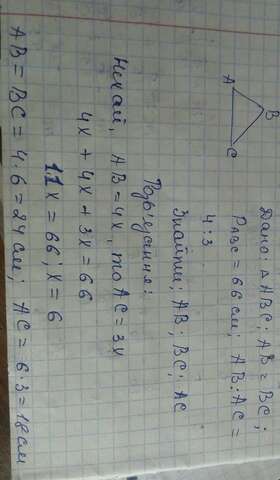 B
A
C
Дано: ΔABC; AB = BC;
PABC = 66 см; AB:AC =
4:3
Знайти: AB; BC; AC
Розв'язання:
Нехай, AB = 4x, то AC = 3x
4x + 4x + 3x = 66
11x = 66; x = 6
AB = BC = 4·6 = 24 см; AC = 6·3 = 18 см